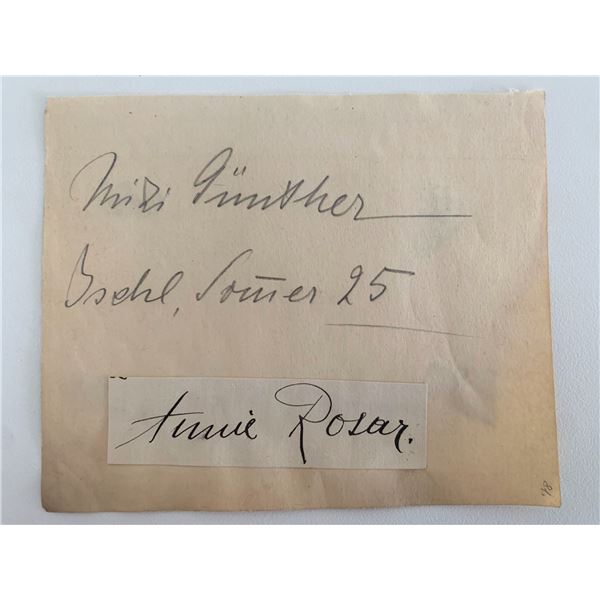 Mizi Günther
Ischl, Som̄er 25
Annie Rosar.
78